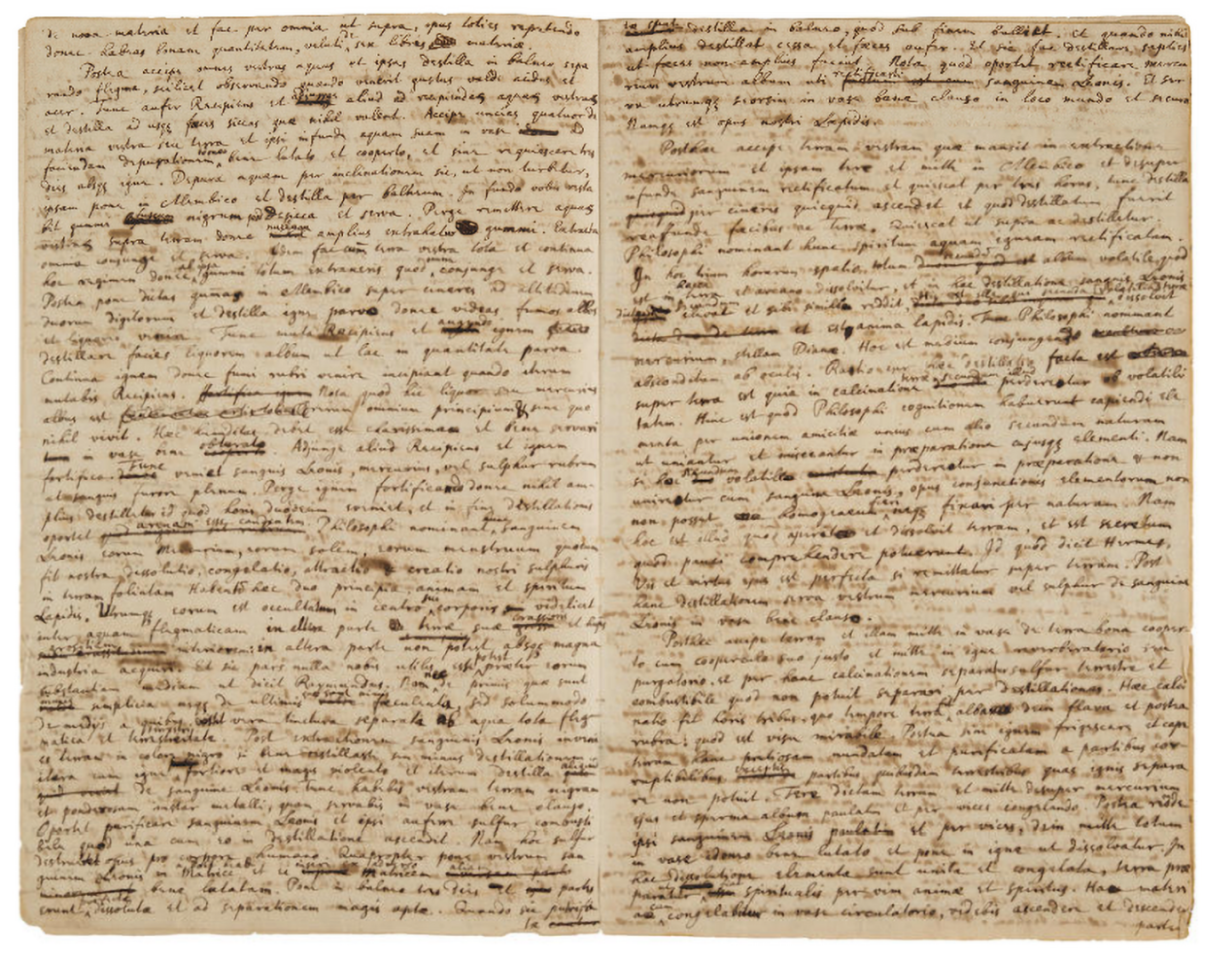 de nova materia et fac per omnia ut supra, opus toties repetendo
donec habeas bonam quantitatem, veluti sex libras materiæ.
Postea accipe omnes vestras aquas et ipsas destilla in balneo sepa
rando flegma, scilicet observando quando venerit gustus valde acidus et
acer. Tunc aufer Recipiens et aliud ad recipiendas aquas vestras
et destilla ad usque fæces siccas quæ nihil valent. Accipe uncias quatuor de
materia vestra seu terra et ipsi infunde aquam suam in vase ad
faciendam depurationem, bene lutato et cooperto, et sine requiescere tres
dies absque igne. Depura aquam per inclinationem sic, ut non turbetur,
ipsam pone in Alembico et destilla per balneum. In fundo vobis resta
bit gummi nigrum et serva. Perge remittere aquas
vestras supra terram donec nullum amplius extrahetur gummi. Extracta
omnia conjunge et serva. Idem fac cum terra vestra tota et continua
hoc regimen donec gummi totum extraxeris quod conjunge et serva.
Postea pone dictas gummas in Alembico super cineres ad altitudinem
duorum digitorum et destilla igne parvo donec videas fumos albos
et liquorem venire. Tunc muta Recipiens et ignem
destillare facies liquorem album ut lac in quantitate parva.
Continua ignem donec fumi rubri venire incipiant quando iterum
mutabis Recipiens. Nota quod hic liquor seu mercurius
albus est rerum omnium principium sine quo
nihil vivit. Hæc debet esse clarissimam et bene servari
in vase bene obturato. Adjunge aliud Recipiens et ignem
fortifica Tunc veniet sanguis Leonis, mercurius, vel sulphur rubrum
et sanguis furore plenum. Perge ignem fortificando donec nihil am-
plius destillet id quod horis duodecim eveniet, et in fine destillationis
oportet Philosophi nominant hunc sanguinem
Leonis eorum Mercurium, eorum solem, eorum menstruum quotum
fit nostra dissolutio, congelatio, attractio & creatio nostri sulphuris
in terram foliatam Habent hæc duo principia animam et spiritum
Lapidis. Utrumque eorum est occultatum in centro sui corporis videlicet
inter aquam flegmaticam in altera parte & terræ suæ
interiorem: in altera parte non potest absque magna
industria acquiri et sic pars nulla nobis utilis esse potest præter eorum
substantiam mediam ut dicit Raymundus. Nam nec de primis quæ sunt
simplicia neque de ultimis fæculentis, sed solummodo
de medijs a quibus vera tinctura separata ab aqua tota fleg
matica et terrestreitate. Post extractionem sanguinis Leonis invenie
es terram in colore nigro si bene destillasti sin minus destillationem
itera cum igne fortiore et magis violento et iterum destilla
de sanguine Leonis tunc habebis vestram terram nigram
et ponderosam instar metalli, quam servabis in vase bene clauso.
Oportet purificare sanguinem Leonis et ipsi auferre sulfur combusti
bile quod una cum eo in destillatione ascendit. Nam hoc sulfur
destrueret opus pro corpore humano. Quapropter pone vestrum san
guinem Leonis in Matrice et Matricem
bene lutatam. Pone in balneo tres dies et partes
erunt dissolutæ et ad separationem magis aptæ. Quando sic putrefa
destilla in balneo, quod sub finem bulliet. Et quando nihil
amplius destillat cessa, et fæces aufer. Et sic fac destillans septies
ut fæces non amplius faciat. Nota quod oportet rectificare mercu
rium vestrum album uti rectificasti sanguinem Leonis. Et ser
va utrumque seorsim in vase bene clauso in loco mundo et securo
Namque est opus nostri Lapidis.
Posthac accipe terram vestram quæ mansit in extractione
mercuriorum et ipsam tere et mitte in Alembico et desuper
infunde sanguinem rectificatum et quiescat per tres horas, tunc destilla
per cineres quicquid ascendet et quod destillatum fuerit
reaffunde fæcibus ac terræ. Quiescat ut supra ac destilletur.
Philosophi nominant hunc spiritum aquam igneam rectificatam.
In hoc trium horarum spatio, totum est album volatile, quod
est in terra et arcano dissolvitur, et in hac destillatione sanguis Leonis
elevat et sibi simile reddit, dissolvit
et est anima lapidis. Philosophi nominant
mercurium, stellam Dianæ. Hoc est medium conjungendi
absconditum ab oculis. Ratio quod hæc destillatio facta est
super terra est quia in calcinatione perderetur ob volatili
tatem. Hinc est quod Philosophi cognitionem habuerunt capiendi ele
menta per unionem amicitiæ unius cum alio secundum naturam
ut uniantur et misceantur in præparatione cujusque elementi. Nam
si hoc volatile perderetur in præparatione & non
uniretur cum sanguine Leonis, opus conjunctionis elementorum non
non possit homogeneum neque fixari per naturam. Nam
hoc est illud quod aperit et dissolvit terram, et est secretum
quod pauci comprehendere potuerunt. Id quod dicit Hermes,
Vis et virtus ejus est perfecta si remittatur super terram. Post
hanc destillationem serva vestrum mercurium vel sulphur de sanguine
Leonis in vase bene clauso.
Posthæc accipe terram et illam mitte in vase de terra bona cooper-
to cum cooperculo suo justo et mitte in igne reverberatorio seu
purgatorio, et per hanc calcinationem separatur sulfur terrestre et
combustibile quod non potuit separari per destillationes. Hæc calci
natio fit horis tribus, quo tempore terra albam dein flava et postea
rubra; quod est visu mirabile. Postea sine ignem frigescere et cape
terram hanc pretiosam mundatam et purificatam a partibus cor-
ruptibilibus partibus quibusdam terrestribus quas ignis separa
re non potuit. Tere dictam terram et mitte desuper mercurium
ejus et sperma album paulatim et per vices congelando. Postea redde
ipsi sanguinem Leonis paulatim et per vices, dein mitte totum
in vase idoneo bene lutato et pone in igne ut dissolvatur. In
hac dissolutione elementa sunt unita et congelata, terra præ
paratur spiritualis per vim animæ et spiritus. Hac materi
a congelabitur in vase circulatorio, videbis ascendere et descendere
partes